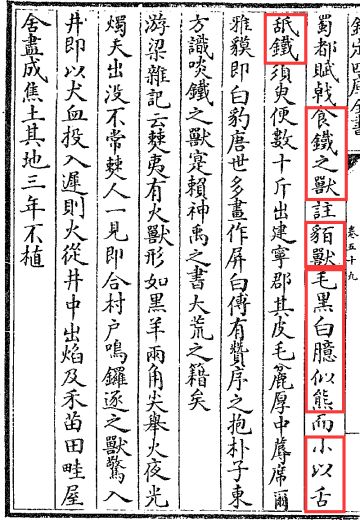 蜀都賦戟食鐵之獸註貊獸毛黑白臆似熊而小以舌
舐鐵須臾便數十斤出建寧郡其皮毛麄厚中蓐席爾
雅貘即白豹唐世多畫作屏白傅有贊序之抱朴子東
方識啖鐵之獸寔賴神禹之書大荒之籍矣
游梁雜記云𣗥夷有火獸形如黑羊兩角尖舉火夜光
燭天出没不常𣗥人一見即合村户鳴鑼逐之獸驚入
井即以犬血投入遲則火從井中出焰及禾苗田畦屋
舍盡成焦土其地三年不植
卷五十九